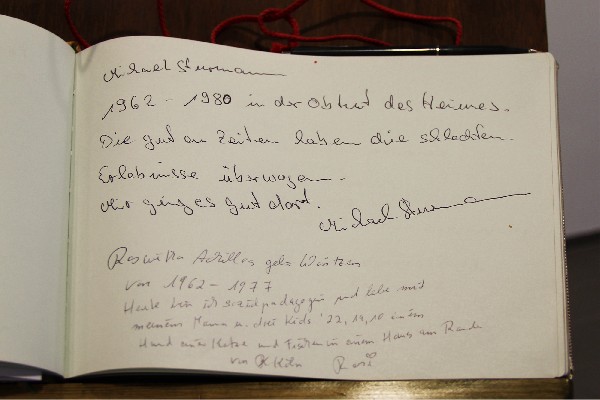 Michael Sturmann
1962 - 1980 in der Obhut des Heimes.
Die guten Zeiten haben die schlechten
Erlebnisse überwogen.
Mir ging es gut dort.
Michael Sturmann
Roswitha geb.
von 1962 - 1977
Heute bin ich Sozialpädagogin und lebe mit
meinem Mann u. drei Kids 22, 19, 10 einem
Hund einer Katze und Fischen in einem Haus am Rande
von Köln Rosi